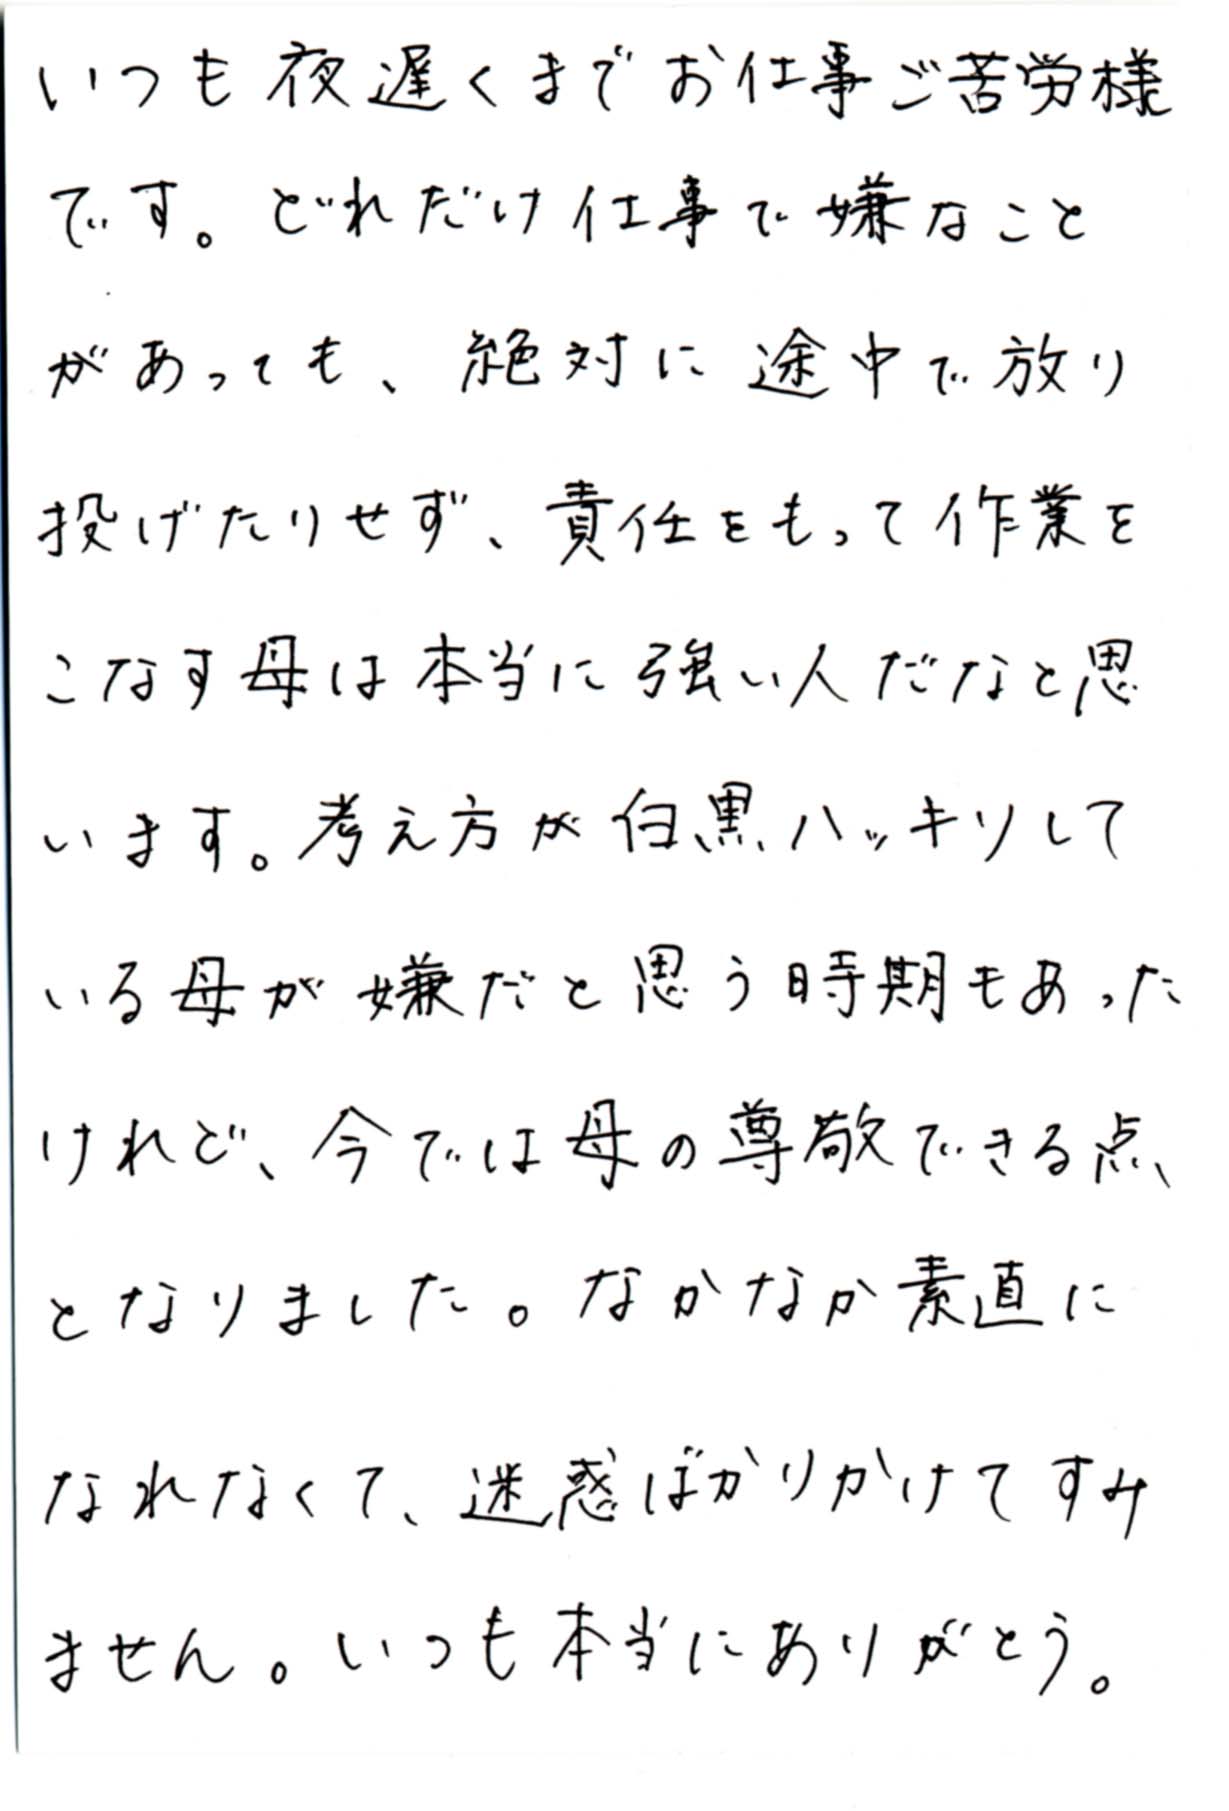 いつも夜遅くまでお仕事ご苦労様
です。どれだけ仕事で嫌なこと
があっても、絶対に途中で放り
投げたりせず、責任をもって作業を
こなす母は本当に強い人だなと思
います。考え方が白黒ハッキリして
いる母が嫌だと思う時期もあった
けれど、今では母の尊敬できる点
となりました。なかなか素直に
なれなくて、迷惑ばかりかけてすみ
ません。いつも本当にありがとう。